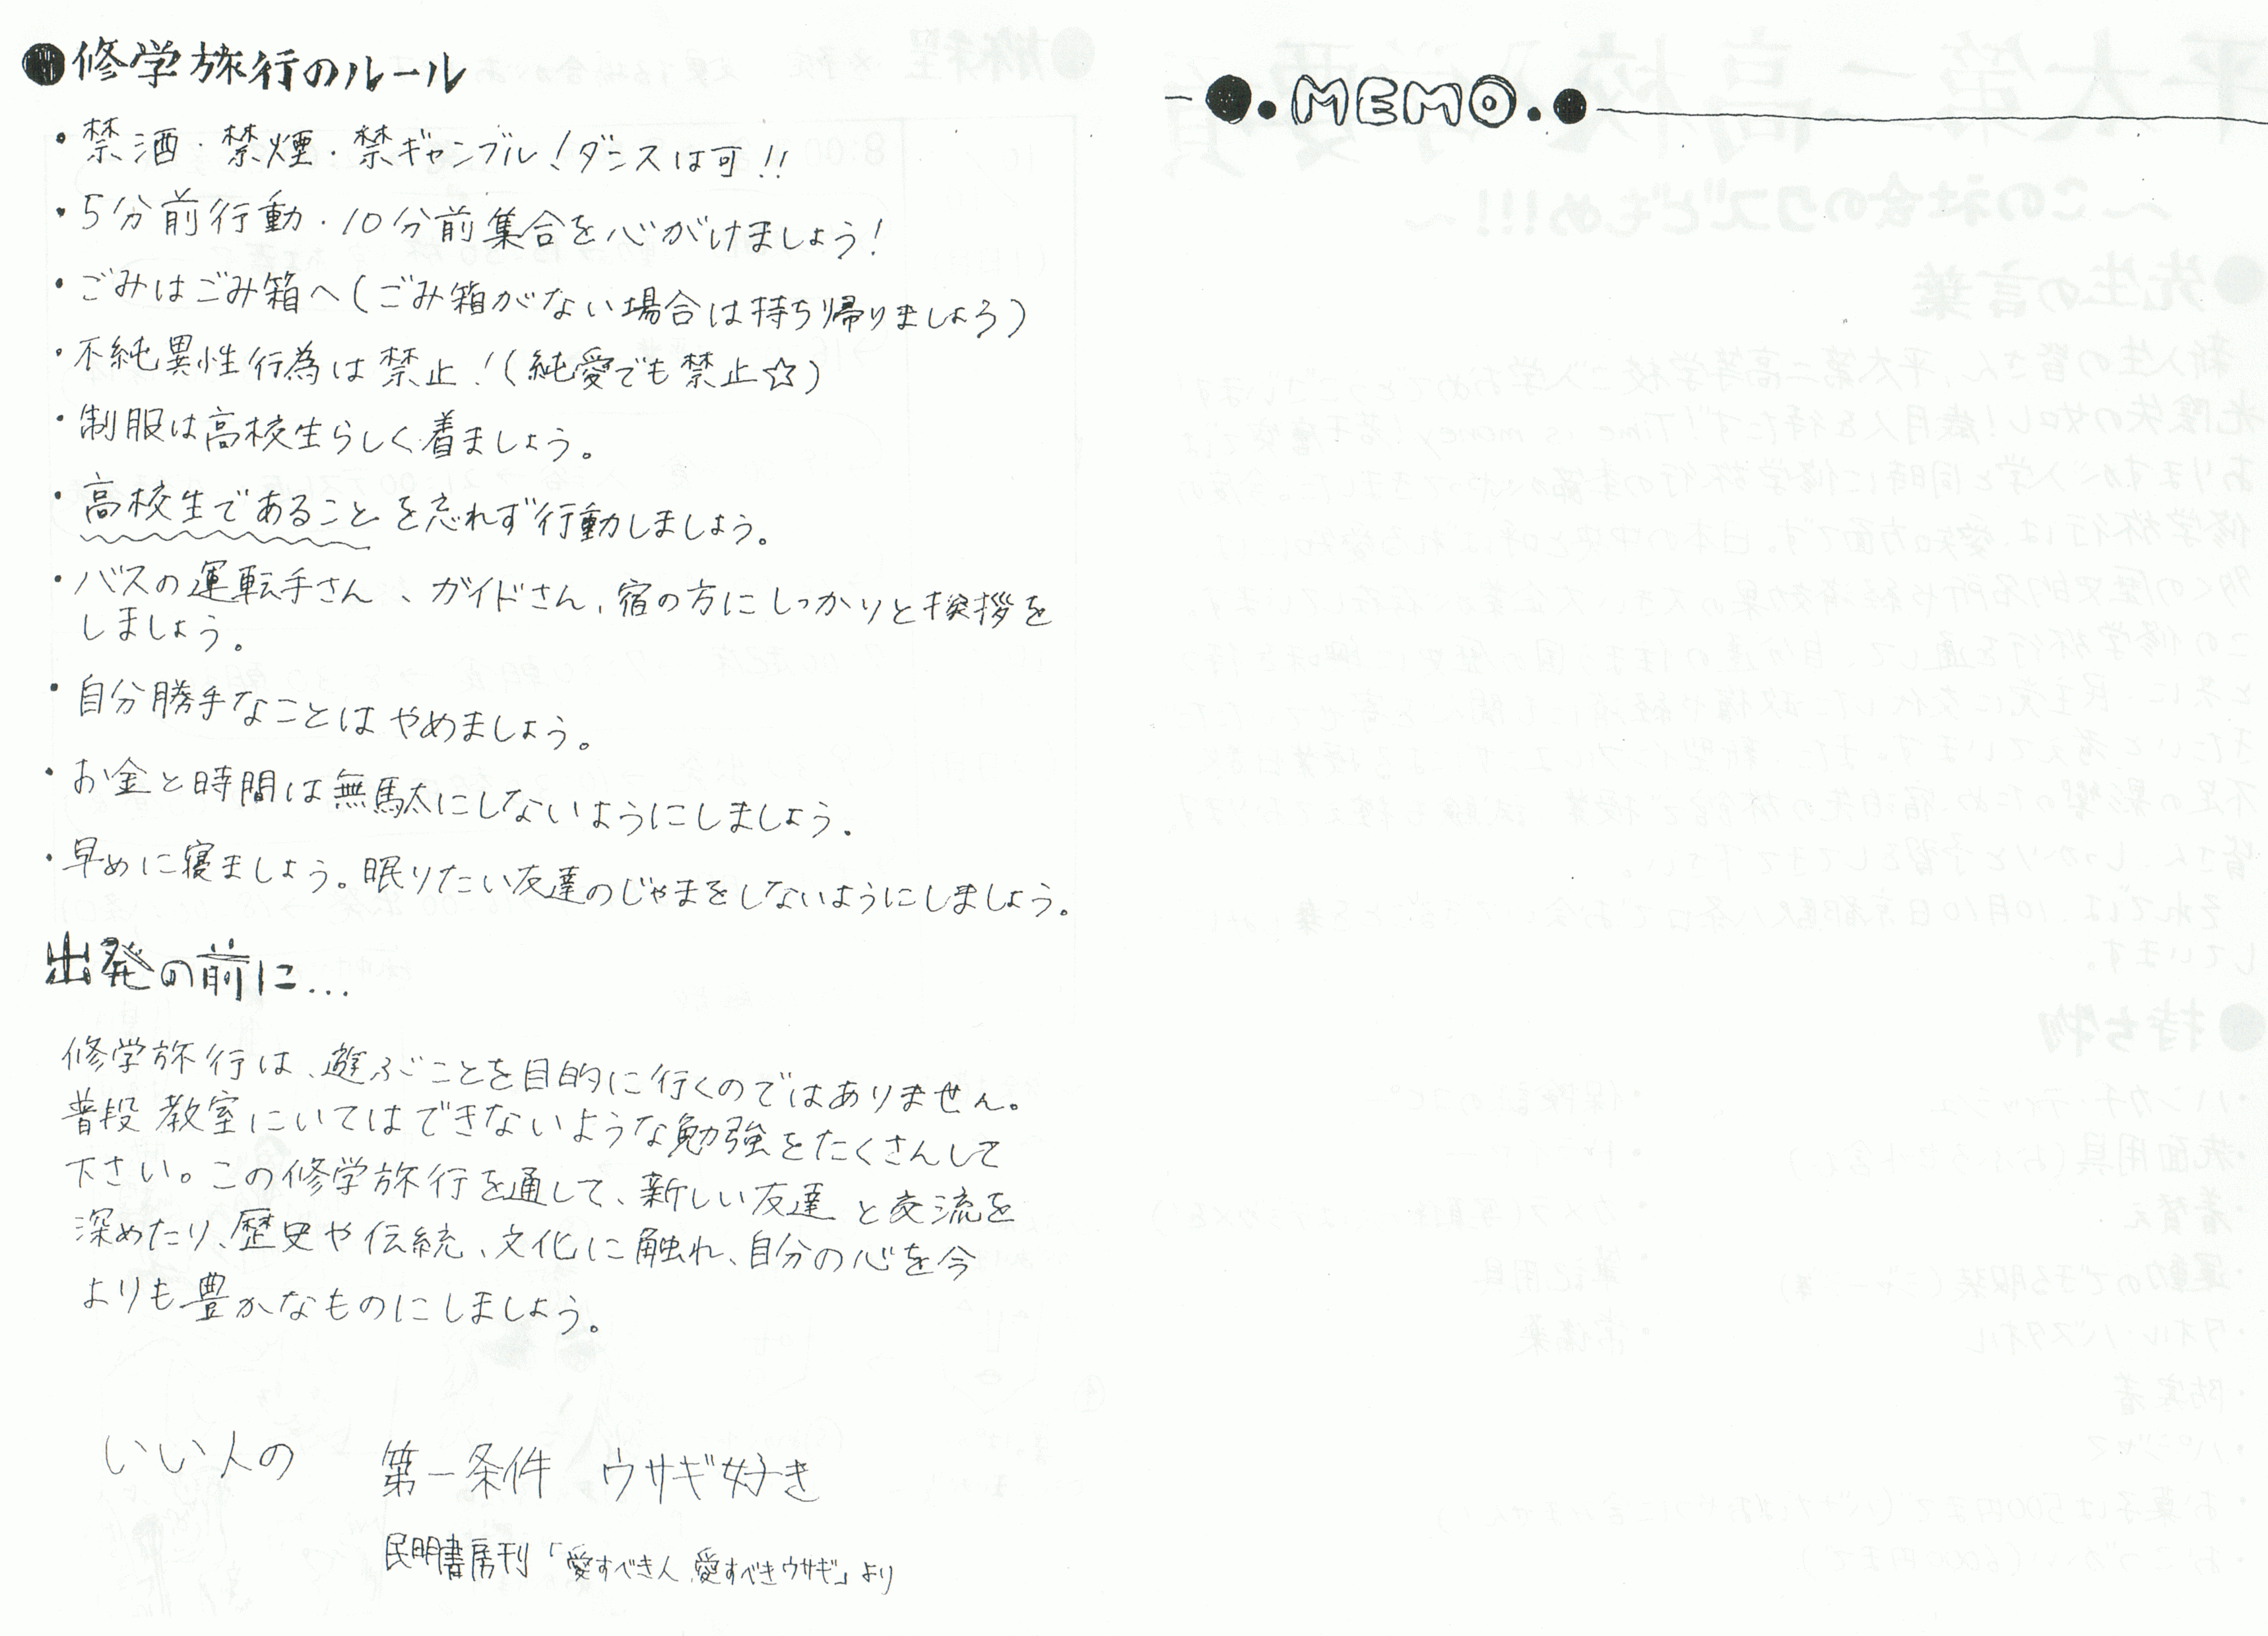 ●修学旅行のルール
・禁酒・禁煙・禁ギャンブル！ダンスは可！！
・5分前行動・10分前集合を心がけましょう！
・ごみはごみ箱へ（ごみ箱がない場合は持ち帰りましょう）
・不純異性行為は禁止！（純愛でも禁止☆）
・制服は高校生らしく着ましょう。
・高校生であることを忘れず行動しましょう。
・バスの運転手さん、ガイドさん、宿の方にしっかりと挨拶を
しましょう。
・自分勝手なことはやめましょう。
・お金と時間は無駄にしないようにしましょう。
・早めに寝ましょう。眠りたい友達のじゃまをしないようにしましょう。
出発の前に…
修学旅行は、遊ぶことを目的に行くのではありません。
普段教室にいてはできないような勉強をたくさんして
下さい。この修学旅行を通して、新しい友達と交流を
深めたり、歴史や伝統、文化に触れ、自分の心を今
よりも豊かなものにしましょう。
いい人の 第一条件 ウサギ好き
民明書房刊「愛すべき人、愛すべきウサギ」より
●.MEMO.●